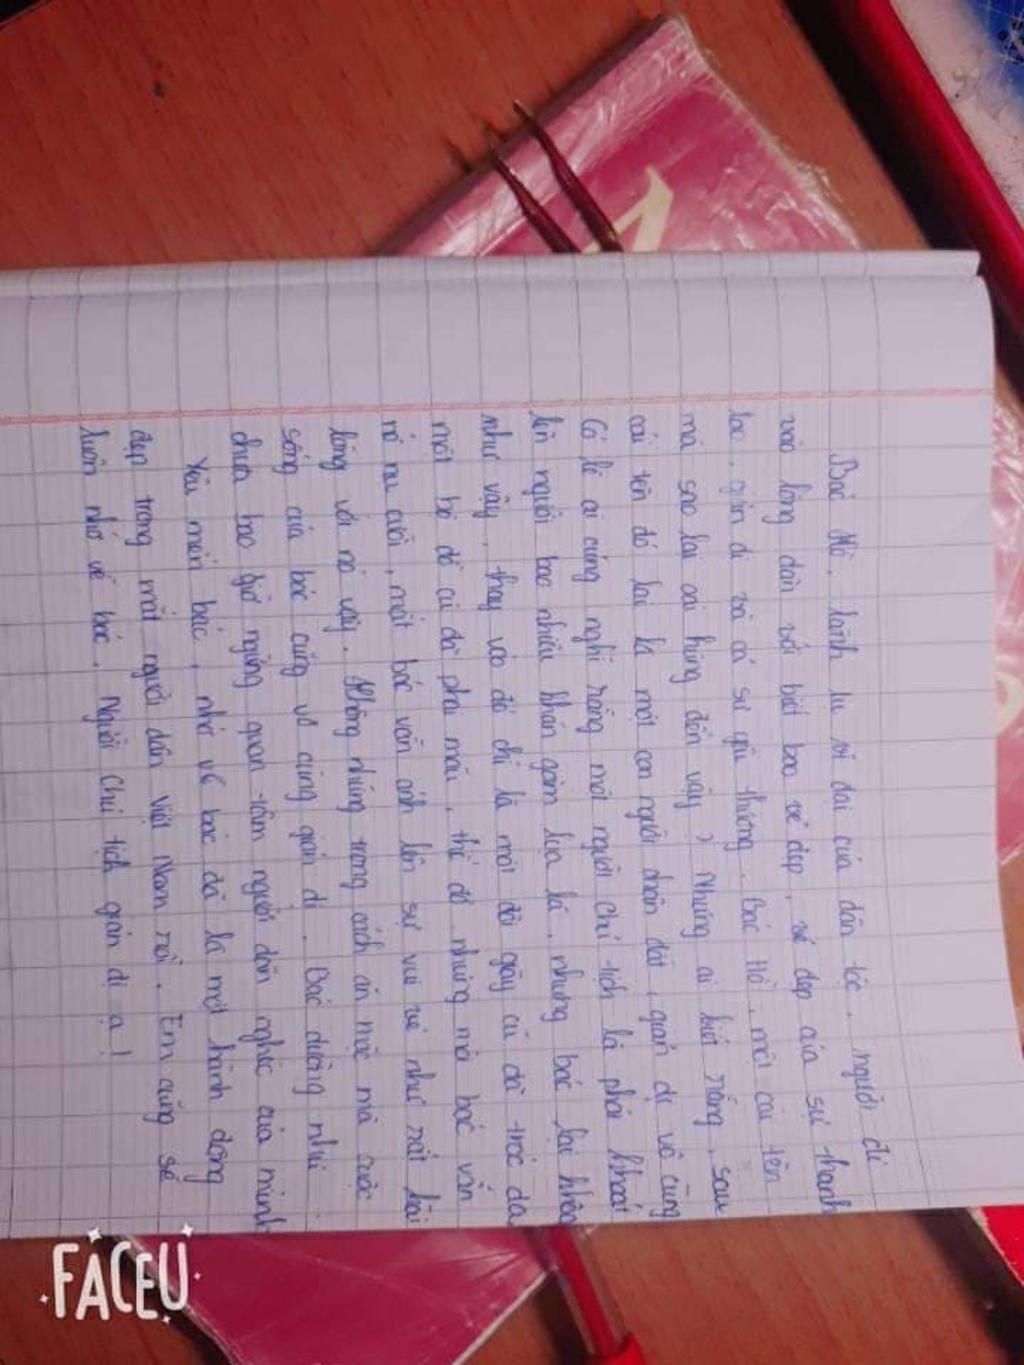 Bác Hồ, lãnh tụ vĩ đại của dân tộc, người đi
vào lòng dân với biết bao vẻ đẹp, vẻ đẹp của sự thanh
lao, giản dị và cả sự yêu thương. Bác Hồ, một cái tên
mà sao lại oai hùng đến vậy? Nhưng ai biết rằng, sau
cái tên đó lại là một con người chân đất, giản dị vô cùng
Có lẽ ai cũng nghĩ rằng một người Chủ tịch là phải khoác
lên người bao nhiêu khăn gấm lụa là, nhưng bác lại không
như vậy, thay vào đó chỉ là một đôi giày cũ đã tróc da
một bộ đồ cũ đã phai màu, thế đó nhưng mà bác vẫn
nở nụ cười, mắt bác vẫn ánh lên sự vui vẻ như rất hài
lòng với nó vậy. Không những trong cách ăn mặc mà cuộc
sống của bác cũng vô cùng giản dị. Bác dường như
chưa bao giờ ngừng quan tâm người dân nghèo của mình
Yêu mến bác, nhớ về bác đã là một hành động
đẹp trong mắt người dân Việt Nam rồi. Em cũng sẽ
luôn nhớ về bác. Người Chủ tịch giản dị ạ!
FACEU